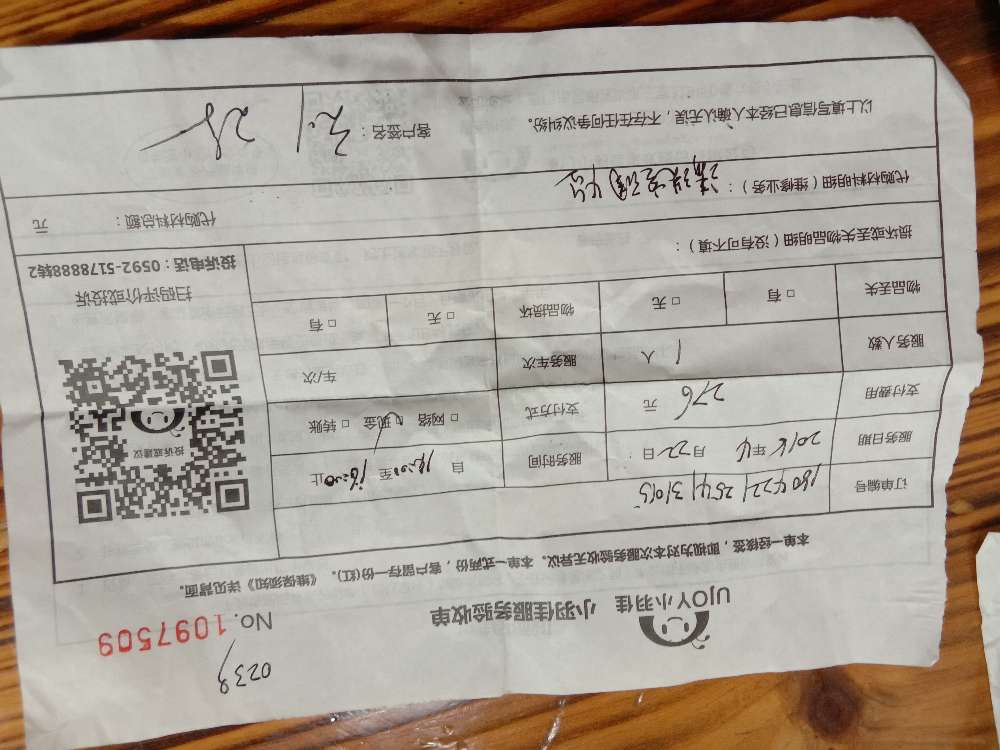 0239
UJOY小羽佳 小羽佳服务验收单 No.1097509
本单一经核签，即视为对本次服务验收无异议。本单一式两份，客户留存一份(红)。《维保须知》详见背面。
订单编号
服务日期 年4月22日： 服务时间 自 至16:00止
支付费用 276 元 支付方式 □网络 □现金 □转账
服务人数 1 人 服务车次 车/次
物品丢失 □有 □无 物品损坏 □无 □有
损坏或丢失物品明细（没有可不填）：
代购材料明细（维修业务）：
代购材料总额： 元
以上填写信息已经本人确认无误，不存在任何争议纠纷。 客户签名：
投诉或建议
扫码评价或投诉
投诉电话：0592-5178888转2